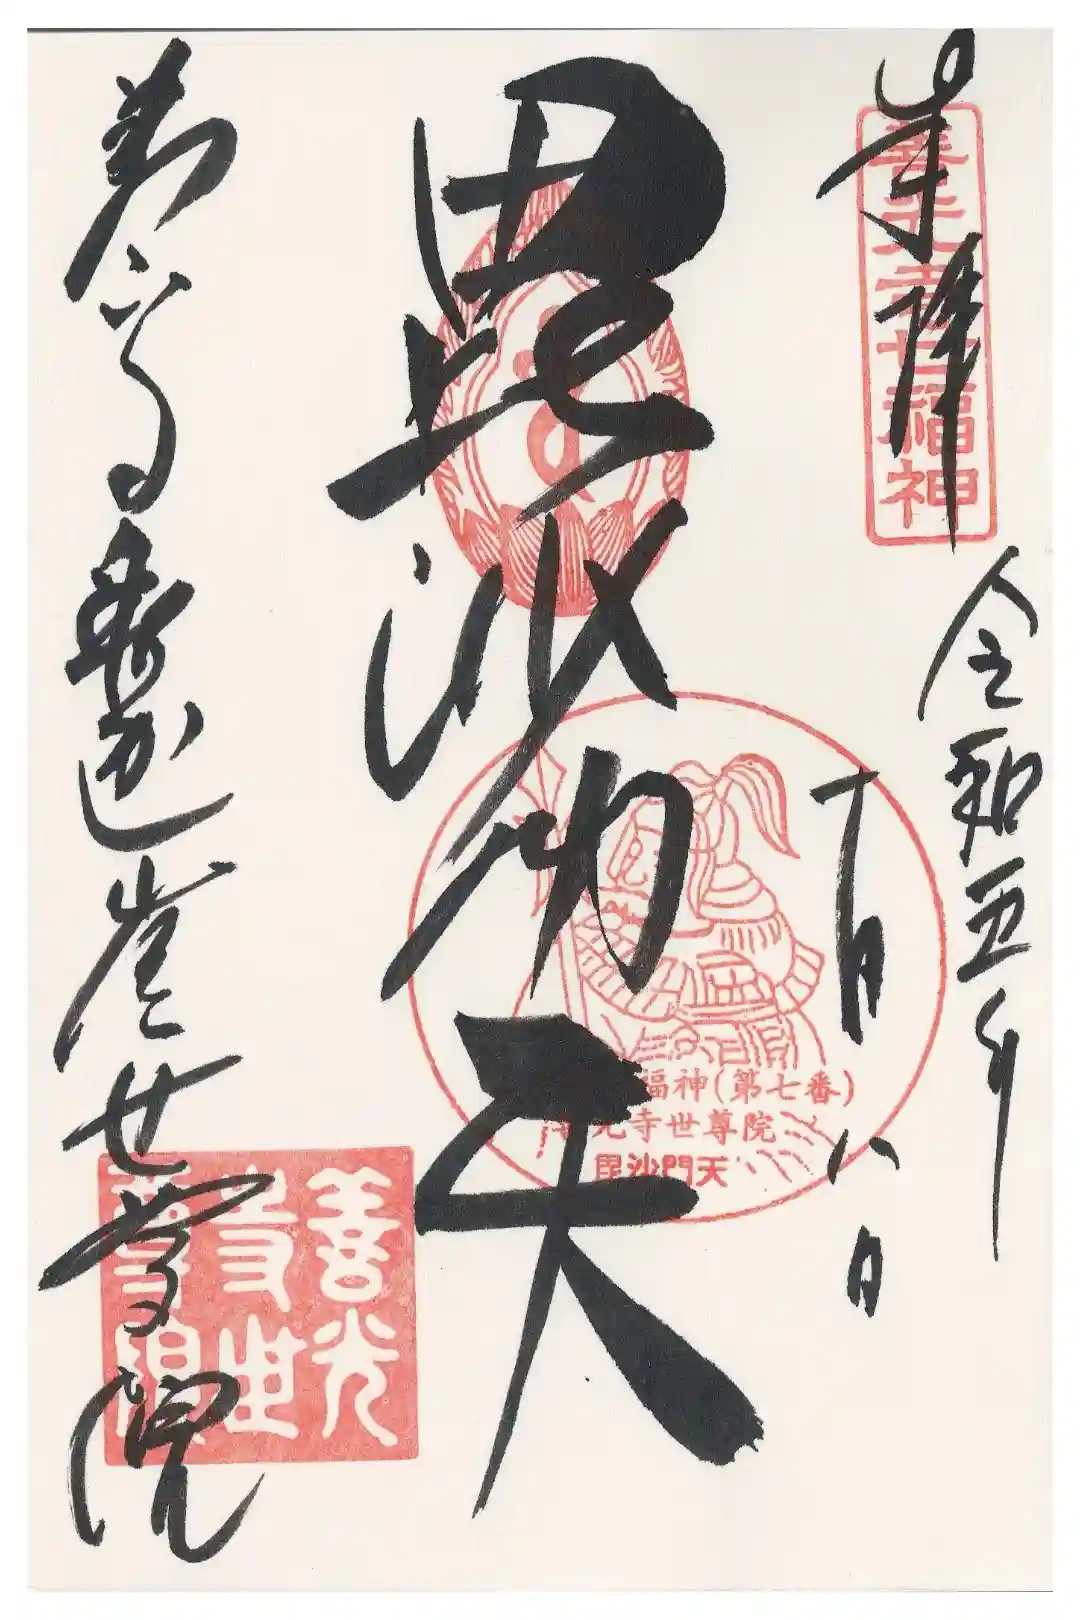 奉拝
善光寺七福神
令和五年
十月八日
毘沙門天
福神(第七番)
光寺世尊院
毘沙門天
善光寺釋迦堂世尊院
善光
寺世
尊院